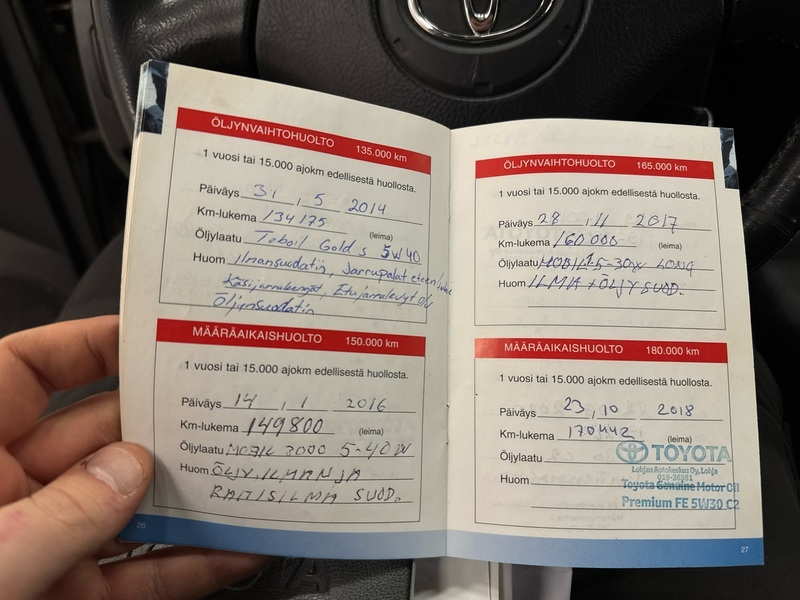 ÖLJYNVAIHTOHUOLTO 135.000 km
1 vuosi tai 15.000 ajokm edellisestä huollosta.
Päiväys 31 . 5 2014
Km-lukema 134175 (leima)
Öljylaatu Teboil Gold s 5W40
Huom Ilmansuodatin, Jarrupalat eteen
Käsijarrukengät, Etujarrulevyt
Öljynsuodatin
MÄÄRÄAIKAISHUOLTO 150.000 km
1 vuosi tai 15.000 ajokm edellisestä huollosta.
Päiväys 14 . 1 2016
Km-lukema 149800 (leima)
Öljylaatu MOBIL 3000 5-40W
Huom ÖLJY, ILMAN JA
RAITISILMA SUOD.
26
ÖLJYNVAIHTOHUOLTO 165.000 km
1 vuosi tai 15.000 ajokm edellisestä huollosta.
Päiväys 28 . 11 2017
Km-lukema 160000 (leima)
Öljylaatu MOBIL 5-30W LONG
Huom ILMA + ÖLJYSUOD.
MÄÄRÄAIKAISHUOLTO 180.000 km
1 vuosi tai 15.000 ajokm edellisestä huollosta.
Päiväys 23 . 10 2018
Km-lukema 170442 (leima)
Öljylaatu
TOYOTA
Lohjan Autokeskus Oy, Lohja
019-36361
Huom
Toyota Genuine Motor Oil
Premium FE 5W30 C2
27